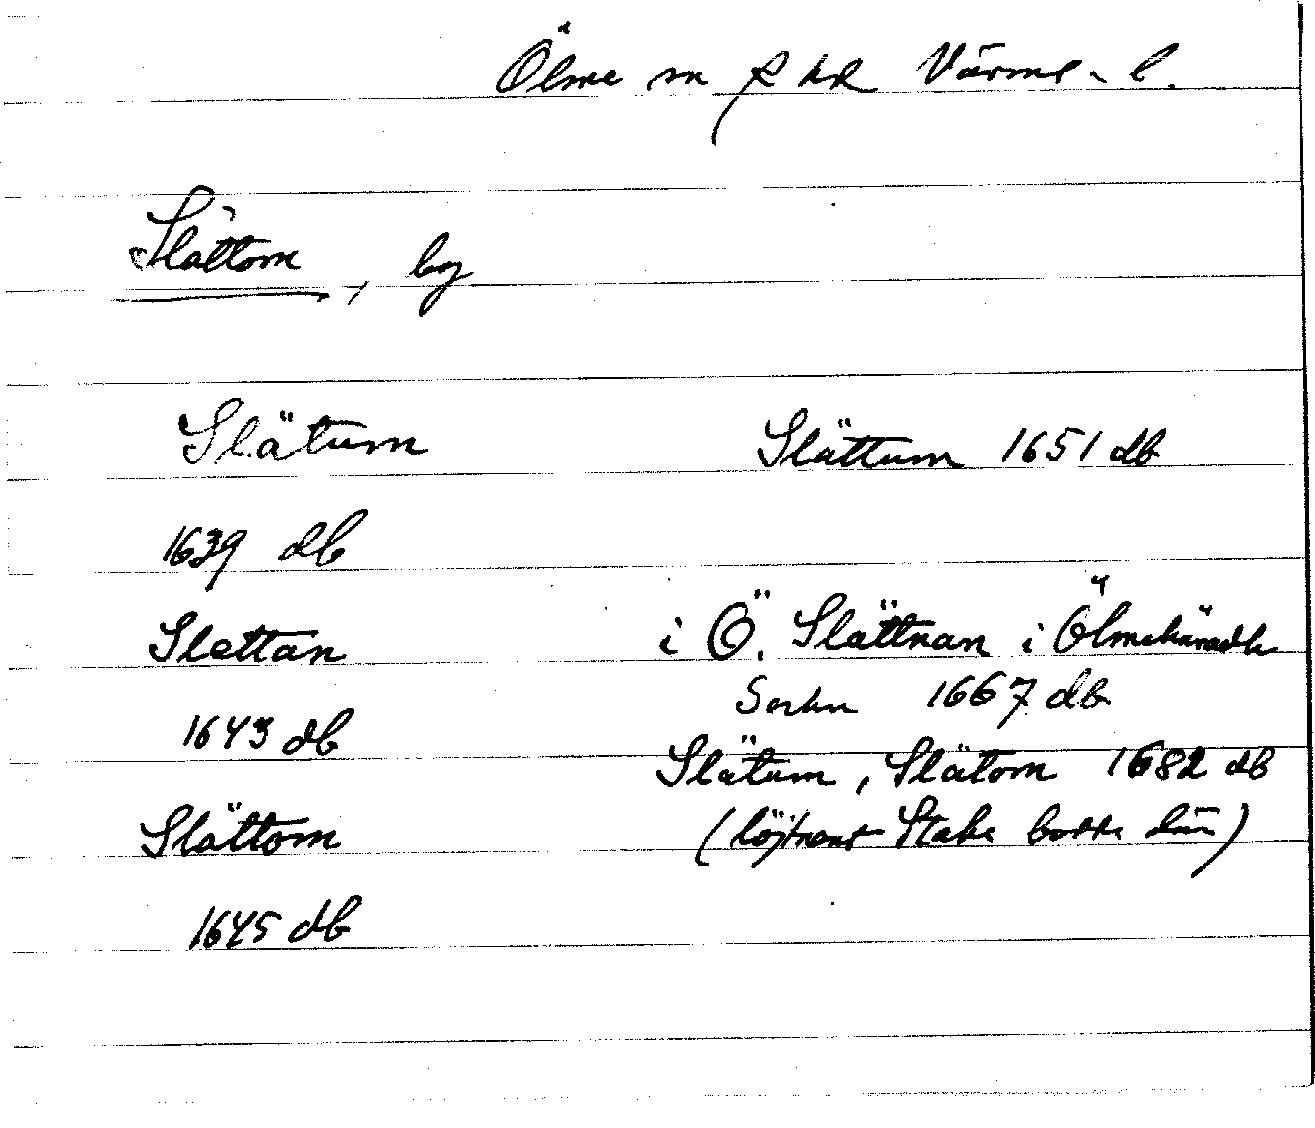 Ölme sn hd Värml. l.
Slättom, by
Slätum
1639 db
Slettan
1643 db
Slättom
1645 db
Slättum 1651 db
i Ö. Slättnan i Ölmehäradh
Sochn 1667 db
Slätum, Slätom 1682 db
(löjtnant Stake bodde där)